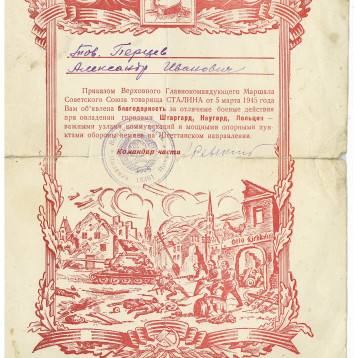 Тов. Перцев
Александр Иванович
Приказом Верховного Главнокомандующего Маршала
Советского Союза товарища СТАЛИНА от 5 марта 1945 года
Вам объявлена благодарность за отличные боевые действия
при овладении городами Штаргард, Наугард, Польцин —
важными узлами коммуникаций и мощными опорными пунк-
тами обороны немцев на Штеттинском направлении.
Командир части
Otto